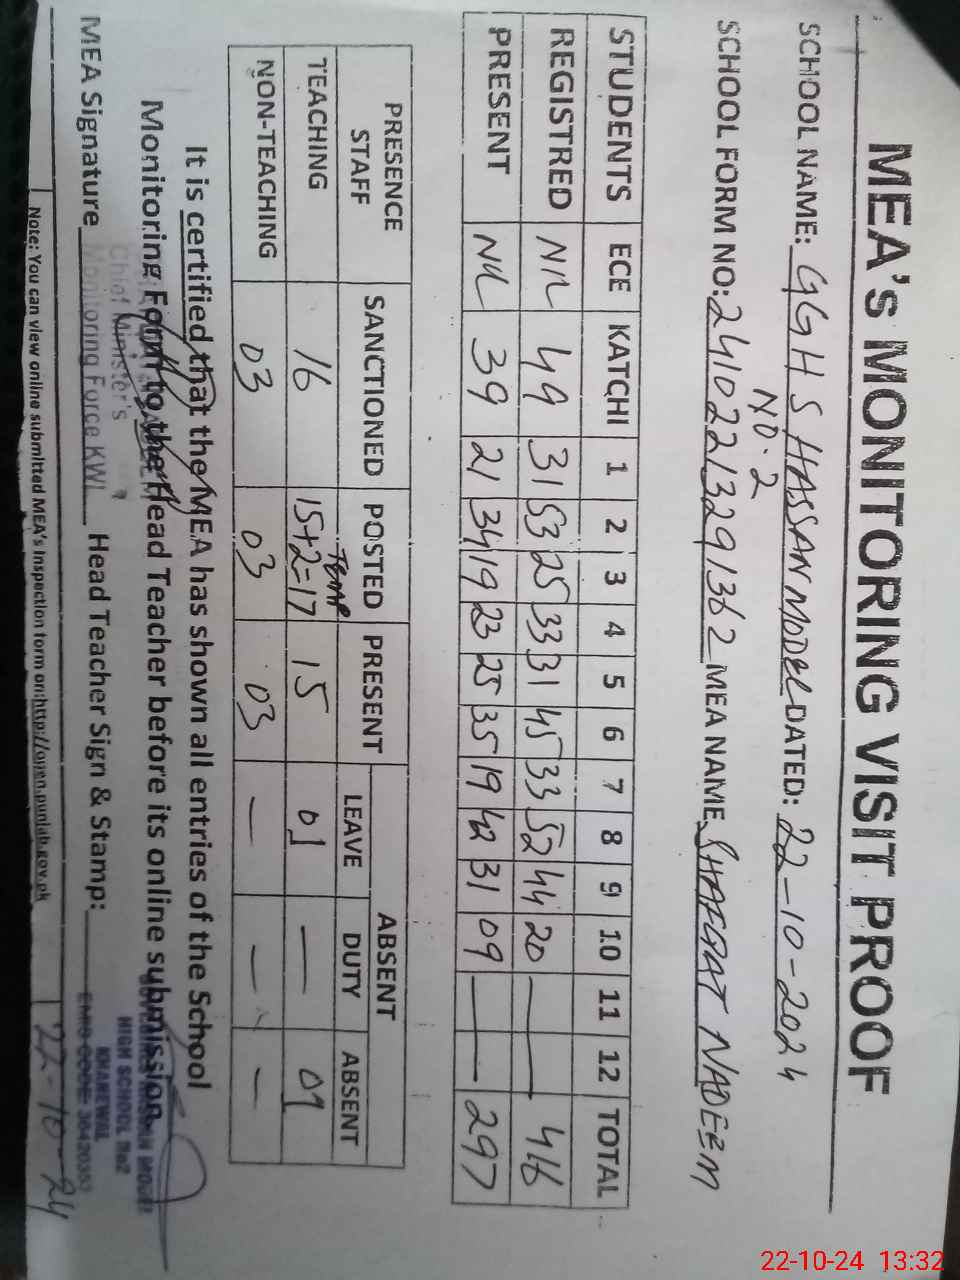 MEA's MONITORING VISIT PROOF
SCHOOL NAME: GGHS HASSAN MODEL DATED: 22-10-2024
NO.2
SCHOOL FORM NO: 24102213291362 MEA NAME SHAFQAT NADEEM
STUDENTS ECE KATCHI 1 2 3 4 5 6 7 8 9 10 11 12 TOTAL
REGISTRED NIL 49 31 53 25 33 31 45 33 52 44 20 — — 416
PRESENT NIL 39 21 34 19 23 25 35 19 42 31 09 — — 297
PRESENCE STAFF SANCTIONED POSTED PRESENT ABSENT
LEAVE DUTY ABSENT
Temp
TEACHING 16 15+2=17 15 01 — 01
NON-TEACHING 03 03 03 — — —
It is certified that the MEA has shown all entries of the School
Monitoring Form to the Head Teacher before its online submission.
MEA Signature Head Teacher Sign & Stamp:
Chief Minister's
Monitoring Force KWL
HIGH SCHOOL No2
KHANEWAL
22-10-24
Note: You can view online submitted MEA's Inspection form on:http://open.punjab.gov.pk
22-10-24 13:32